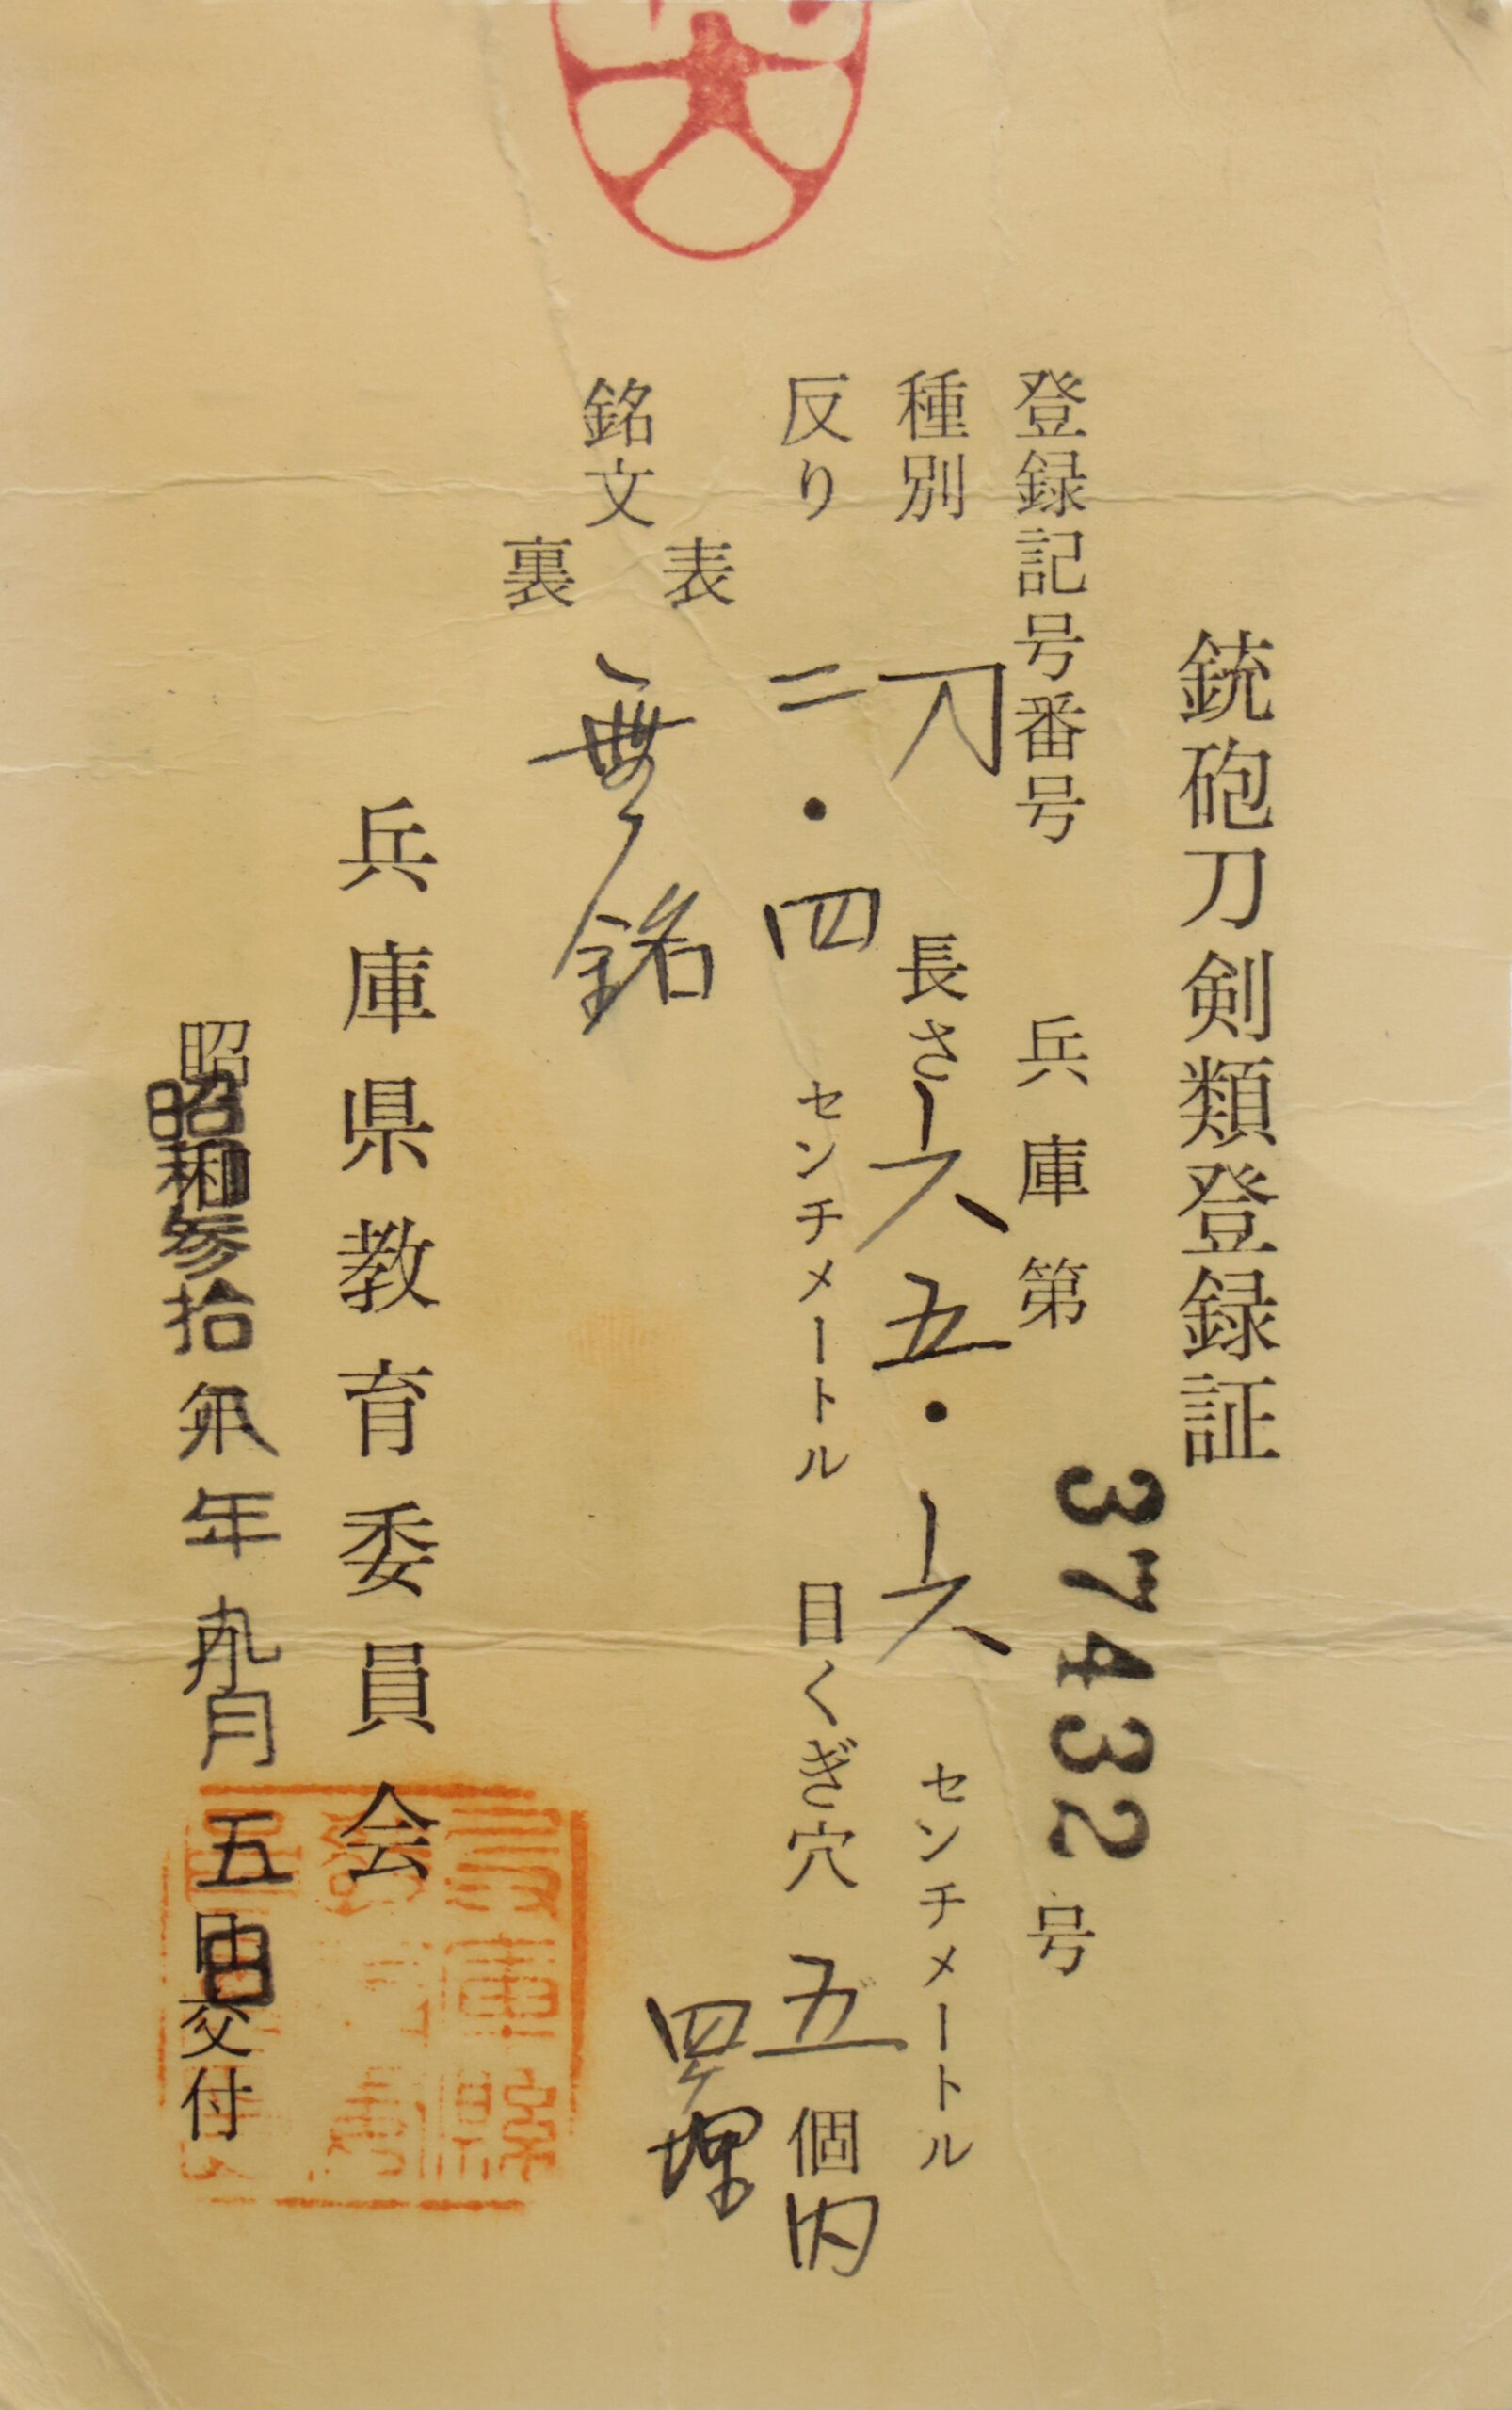 銃砲刀剣類登録証
登録記号番号 兵庫第 37432 号
種別 刀 長さ 六五・六 センチメートル
反り 二・四 センチメートル 目くぎ穴 五個内
四ケ埋
銘文 表 裏 無銘
兵庫県教育委員会
昭和参拾八年九月五日交付